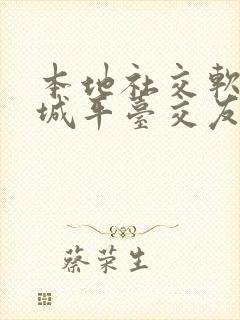 本地社交軟
城平臺交友
蔡荣生